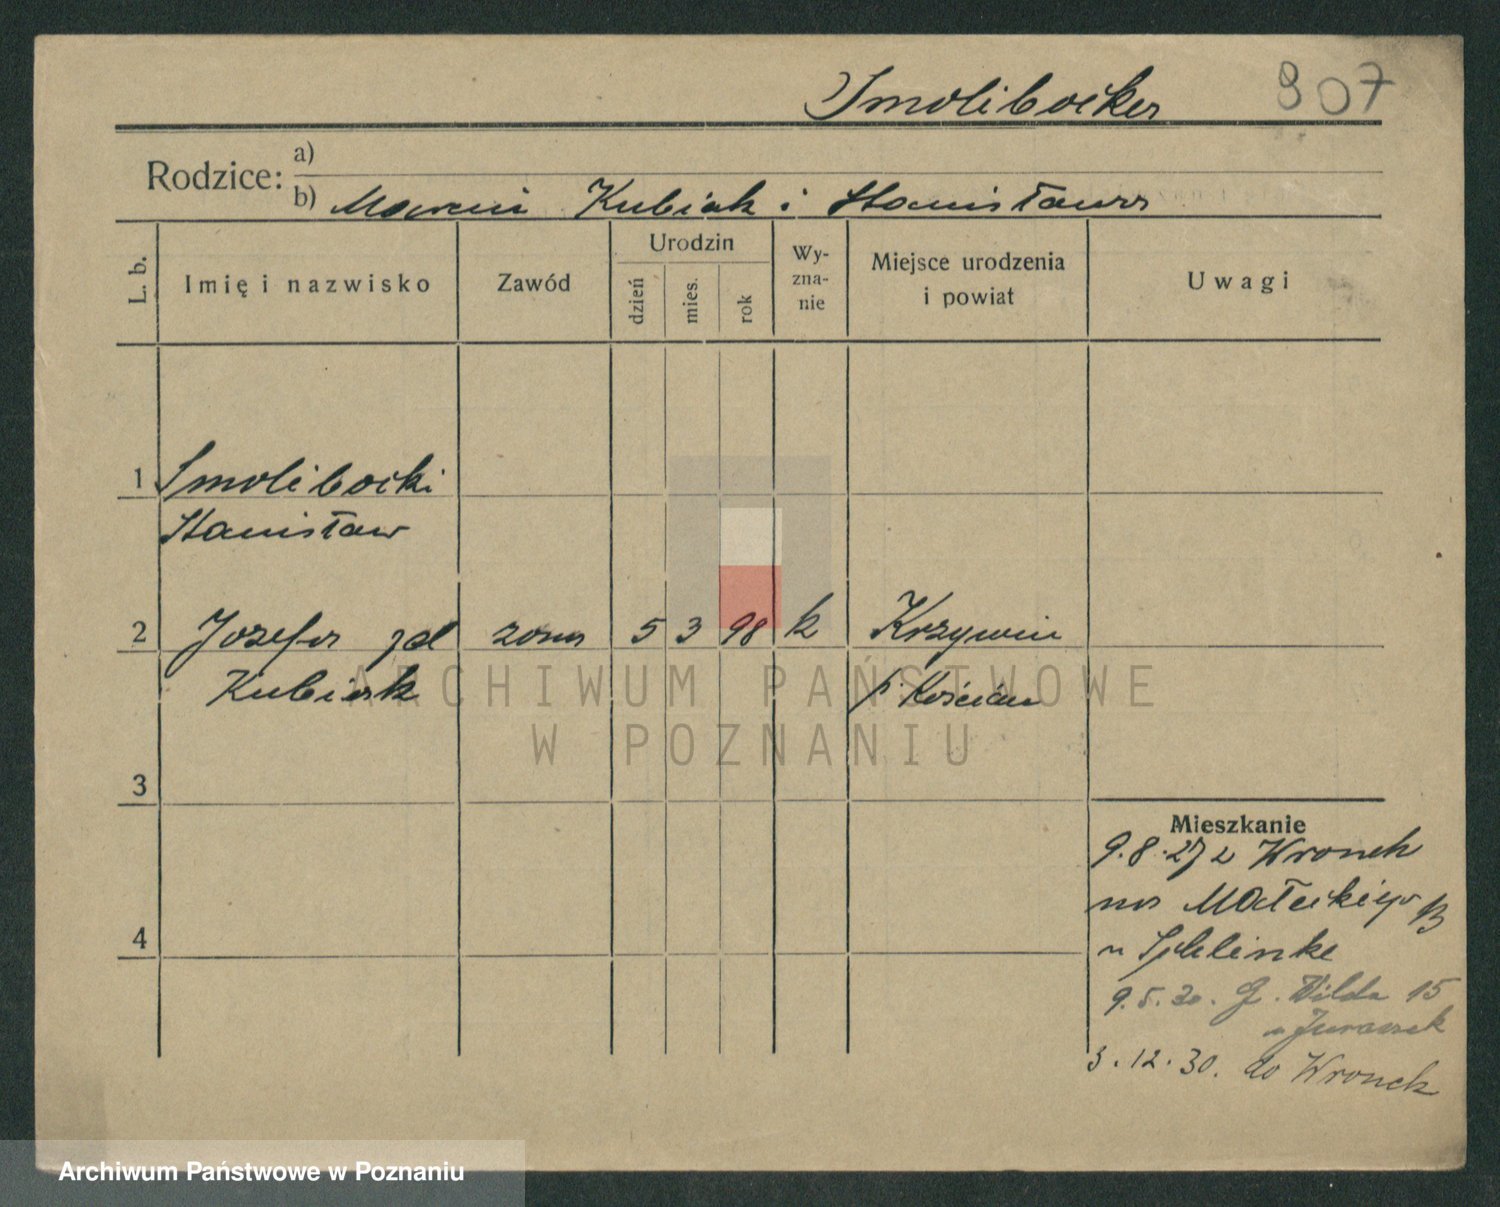 Smolibocka 907
Rodzice: a)
b) Marcin Kubiak i Stanisława
L. b. Imię i nazwisko Zawód Urodzin dzień mies. rok Wy-zna-nie Miejsce urodzenia i powiat Uwagi
1 Smolibocki
Stanisław
2 Józefa zd żona 5 3 98 k Krzywiń
Kubiak p. Kościan
ARCHIWUM PAŃSTWOWE
W POZNANIU
3
Mieszkanie
9.8.27 z Wronek
na Małeckiego
4
u Schlinke
9.5.30. G. Wilda 15
u Juraszek
3.12.30. do Wronek
Archiwum Państwowe w Poznaniu